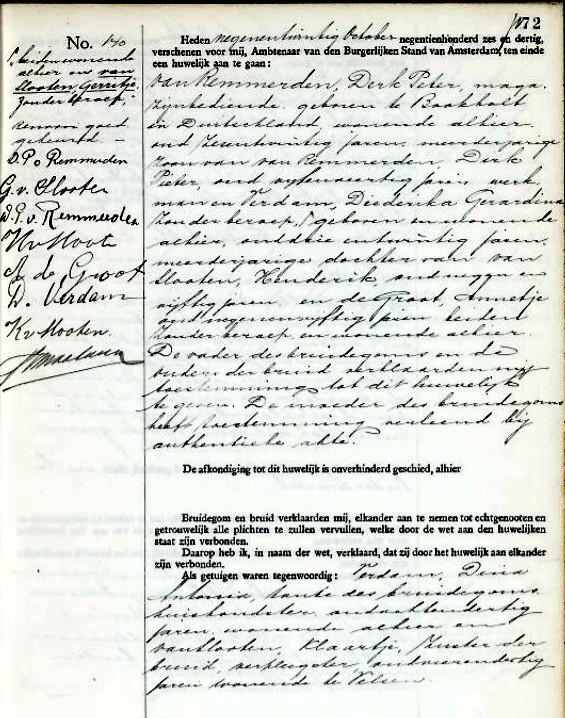 172
No. 140
Heden negenentwintig October negentienhonderd zes en dertig,
verschenen voor mij, Ambtenaar van den Burgerlijken Stand van Amsterdam, ten einde
een huwelijk aan te gaan:
van Remmerden, Derk Peter, maga-
zijnbediende, geboren te Bockholt
in Duitschland, wonende alhier,
oud zesentwintig jaren, meerderjarige
zoon van van Remmerden, Derk
Pieter, oud vijfenveertig jaren, werk-
man en Verdam, Diederika Gerardina
zonder beroep, geboren en wonende
alhier, oud drie entwintig jaren,
meerderjarige dochter van van
Slooten, Henderik, oud negen en
vijftig jaren, en de Groot, Annetje
oud negenenvijftig jaren beiden
zonder beroep en wonende alhier.
De vader des bruidegoms en de
ouders der bruid verklaarden mij
toestemming tot dit huwelijk
te geven. De moeder des bruidegoms
heeft toestemming verleend bij
authentieke akte.
beiden wonende
alhier en van
Slooten, Gerritje,
zonder beroep,
renvooi goed-
gekeurd.
D. P. v Remmerden
G. v. Slooten
D. P. v. Remmerden
H v Slooten
A de Groot
D. Verdam
K v Slooten.
De afkondiging tot dit huwelijk is onverhinderd geschied, alhier
Bruidegom en bruid verklaarden mij, elkander aan te nemen tot echtgenooten en
getrouwelijk alle plichten te zullen vervullen, welke door de wet aan den huwelijken
staat zijn verbonden.
Daarop heb ik, in naam der wet, verklaard, dat zij door het huwelijk aan elkander
zijn verbonden.
Als getuigen waren tegenwoordig: Verdam, Dina
Antonia, tante des bruidegoms,
huishoudster, oud achtendertig
jaren, wonende alhier en
van Slooten, Klaartje, zuster der
bruid, verpleegster, oud vierendertig
jaren wonende te Velsen.